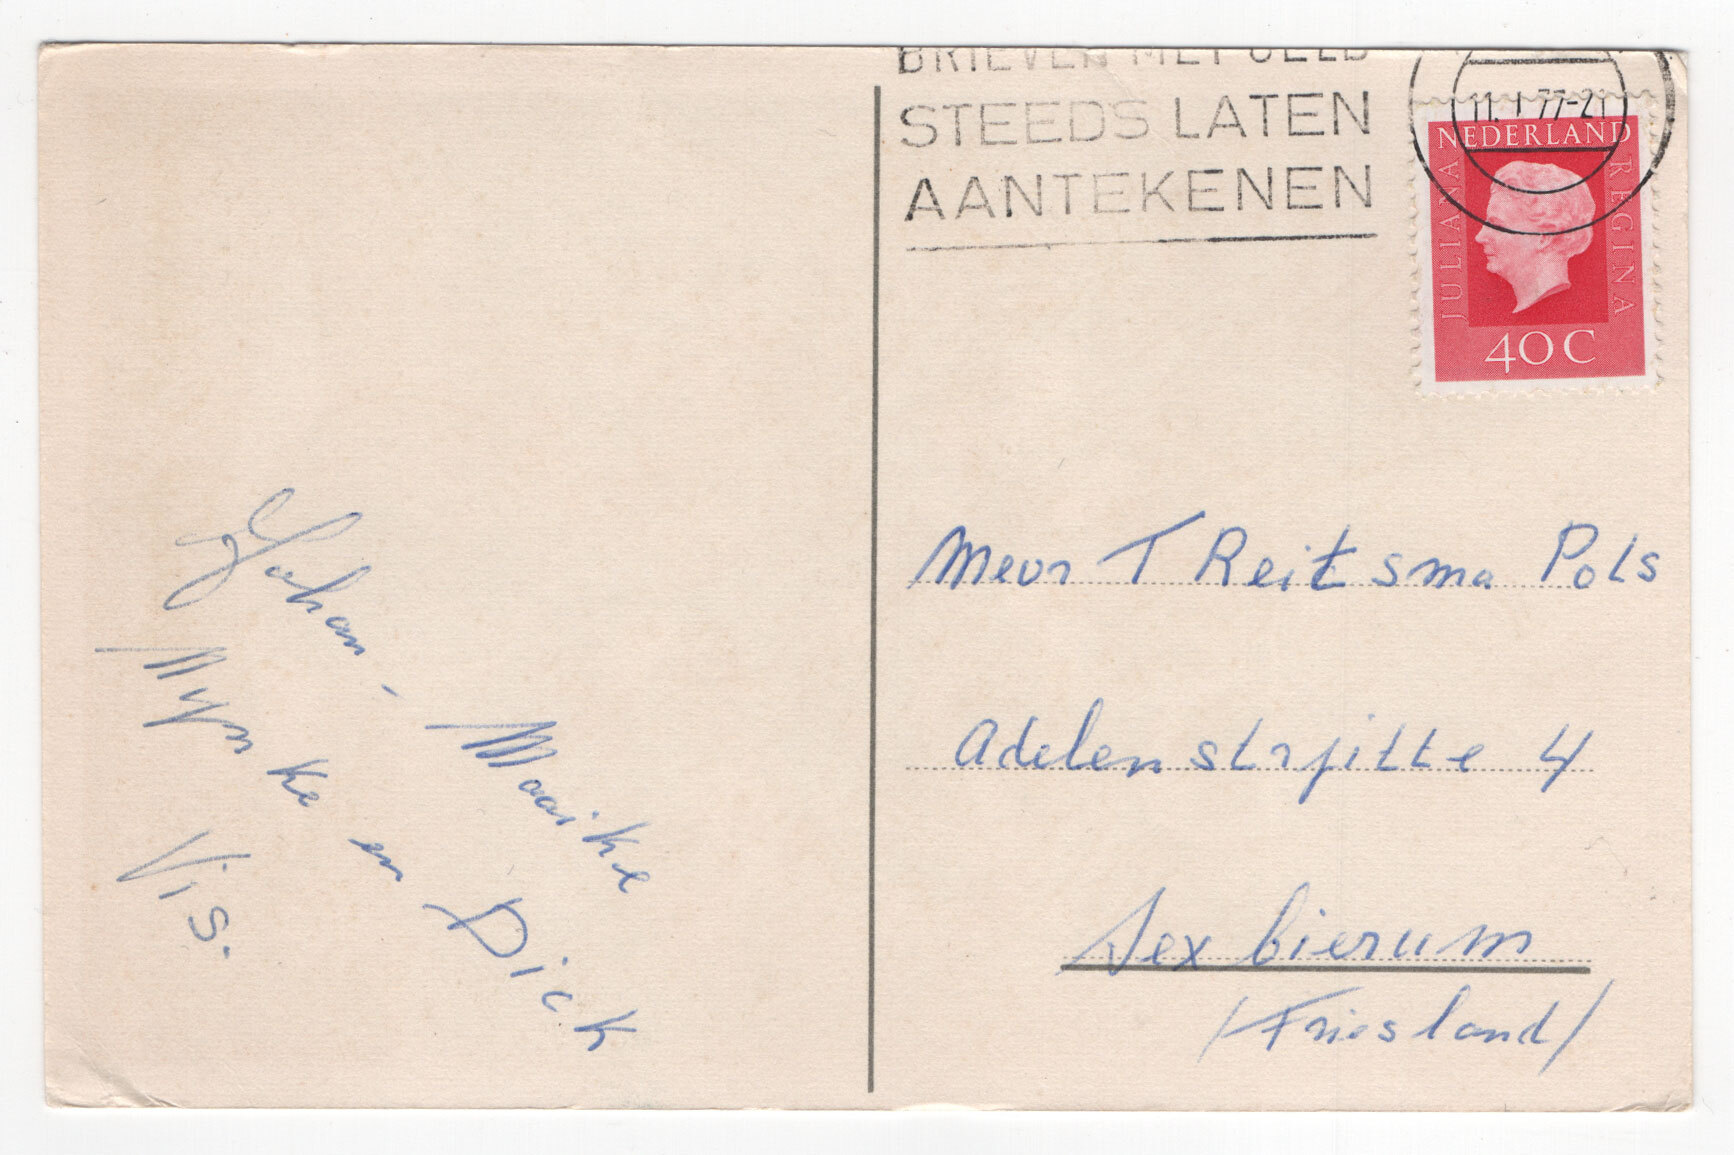 BRIEVEN MET GELD
STEEDS LATEN
AANTEKENEN
11. I 77-21
NEDERLAND
JULIANA
REGINA
40C
Johan - Maaike
Mynke en Dick
Vis.
Mevr T Reitsma Pols
Adelenstrjitte 4
Sexbierum
/Friesland/